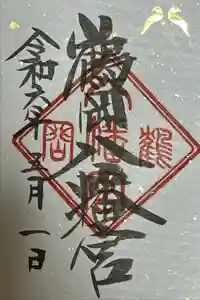 鶴岡八幡宮
令和元年五月一日